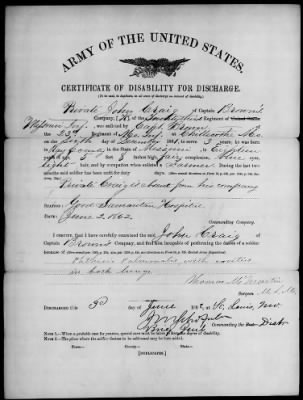 ARMY OF THE UNITED STATES.
CERTIFICATE OF DISABILITY FOR DISCHARGE.
(To be used, in duplicate, in all cases of discharge on account of disability.)
Private John Craig of Captain Brown's
Company, (K) of the Twenty third Regiment of United States
Missouri Inf was enlisted by Capt Brown of
the 23d Regiment of Mo Inf at Chillicothe Mo
on the Sixth day of December 1861, to serve 3 years; he was born
in Ray County in the State of Missouri is Eighteen
years of age, 5 feet 8 inches high, fair complexion, blue eyes,
light hair, and by occupation when enlisted a Farmer. During the last two
months said soldier has been unfit for duty days.
Private Craig is absent from his company
STATION: Good Samaritan Hospital
DATE: June 2. 1862
Commanding Company.
I CERTIFY, that I have carefully examined the said John Craig of
Captain Brown's Company, and find him incapable of performing the duties of a soldier
because of
Phthisis Pulmonalis, with cavities
in both lungs.
Thomas M. Martin
Surgeon.
DISCHARGED this 3d day of June 1862, at St. Louis, Mo.
Commanding the Dist
NOTE 1.—When a probable case for pension, special care must be taken to state the degree of disability.
NOTE 2.—The place where the soldier desires to be addressed may be here added.
Town— County— State—
[DUPLICATES.]